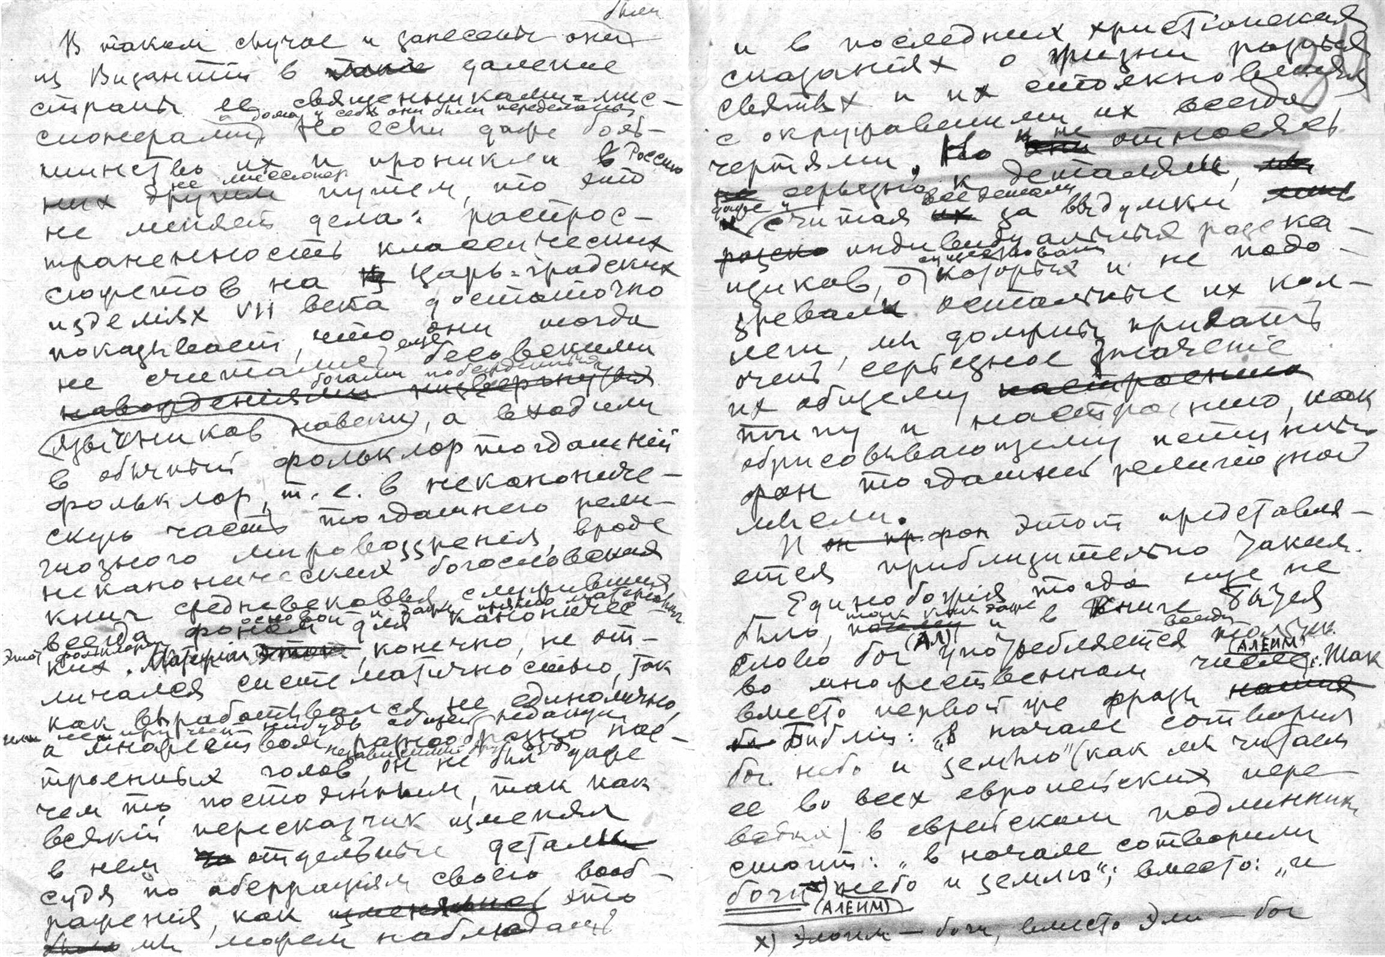 были
В таком случае и занесены они
из Византіи в далекие
страны ее священниками-мис-
а дома у себя они были переделаны
сионерами. Но если даже боль-
шинство их и проникли в Россию
не миссіонер
них другим путем, то это
не меняет дела: распрос-
траненность классических
сюжетов на царь-градских
изделіях VII века достаточно
показывает, что они тогда
не считались еще бесовскими
богами побежденных
наворденіями низвергнутых
язычников навеки, а входили
в обычный фольклор тогдашний
фольклор, т. е. в неканониче-
скую часть тогдашнего рели-
гиозного мировоззренія, вроде
неканонических богословских
книг средневековья, служивших
основой и даже
всегда фоном для каноничес-
Этот фольклорный
ких. Материал этот, конечно, не от-
личался систематичностью, так
как вырабатывался не единолично,
или
а множеством разнообразно нас-
троенных голов, он не был даже
чем то постоянным, так как
всякій пересказчик изменял
в нем отдельные детали
судя по аберраціям своего вооб-
раженія, как это
мы можем наблюдать
и в последних христіанских
сказаніях о жизни разных
святых и их столкновеніях
с окружавшими их всегда
чертями. Но не относясь
серьезно к деталям,
даже и все детали
считая их за выдумки
индивидуальных разска-
существовать
щиков, о которых и не подо-
зревали остальные их кол-
леги, мы должны придать
очень серьезное значеніе
их общему настроению
типу и настроению, как
обрисовывающему
фон тогдашней религіозной
мысли.
И он пр. фон этот представля-
ется приблизительно таким.
Единобожія тогда еще не
так как даже
было, и в книге Бытія
(АЛ) всегда
слово бог употребляется только
(АЛЕИМ)
во множественном числе. Так
вместо первой же фразы
Библіи: "в начале сотворил
бог небо и землю" (как мы читаем
ее во всех европейских пере-
водах) в еврейском подлиннике
стоит: "в начале сотворили
боги х) небо и землю"; вместо: "и
(АЛЕИМ)
х) Элогим — боги, вместо Эли — бог